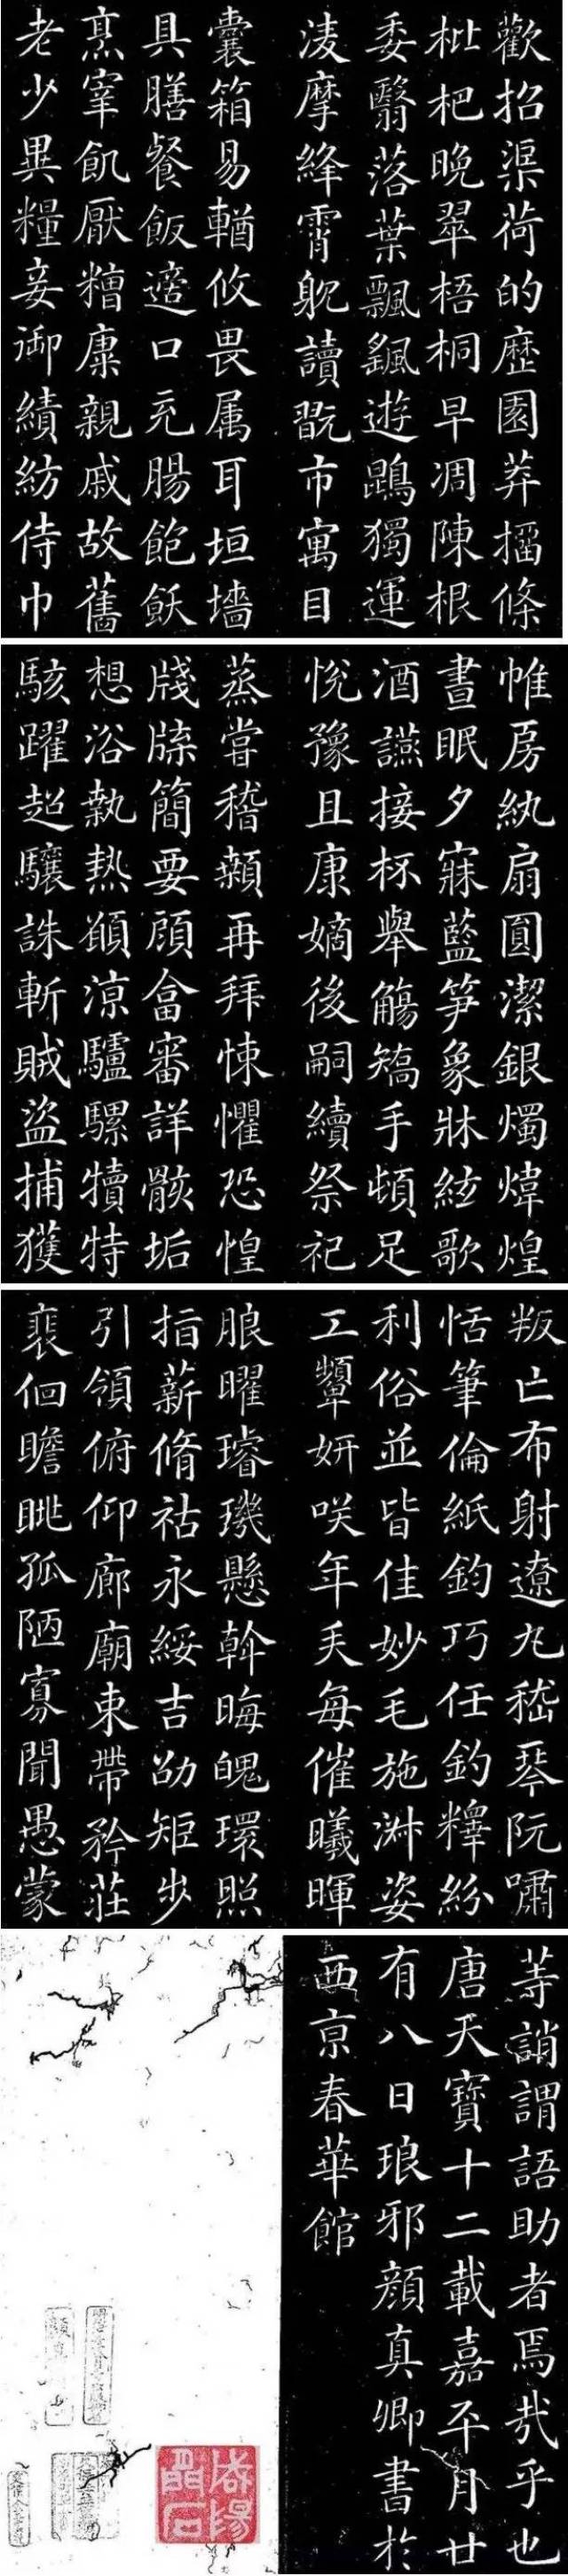 歡招渠荷的歷園莽㨨條
枇杷晚翠梧桐早凋陳根
委翳落葉飄颻遊鵾獨運
淩摩絳霄躭讀翫市寓目
囊箱易輶攸畏属耳垣墻
具膳餐飯適口充腸飽飫
烹宰飢厭糟糠親戚故舊
老少異糧妾御績紡侍巾
帷房紈扇圓潔銀燭煒煌
晝眠夕寐藍笋象牀絃歌
酒讌接杯舉觴矯手頓足
悅豫且康嫡後嗣續祭祀
蒸嘗稽顙再拜悚懼恐惶
牋牒簡要顧畣審詳骸垢
想浴執熱願涼驢騾犢特
駭躍超驤誅斬賊盜捕獲
叛亡布射遼丸嵇琴阮嘯
恬筆倫紙鈞巧任釣釋紛
利俗並皆佳妙毛施淑姿
工顰妍咲年矢每催曦暉
朗曜璿璣懸斡晦魄環照
指薪脩祜永綏吉劭矩步
引領俯仰廊廟束帶矜莊
裴徊瞻眺孤陋寡聞愚蒙
等誚謂語助者焉哉乎也
唐天寶十二載嘉平月廿
有八日琅邪顏真卿書於
西京春華館